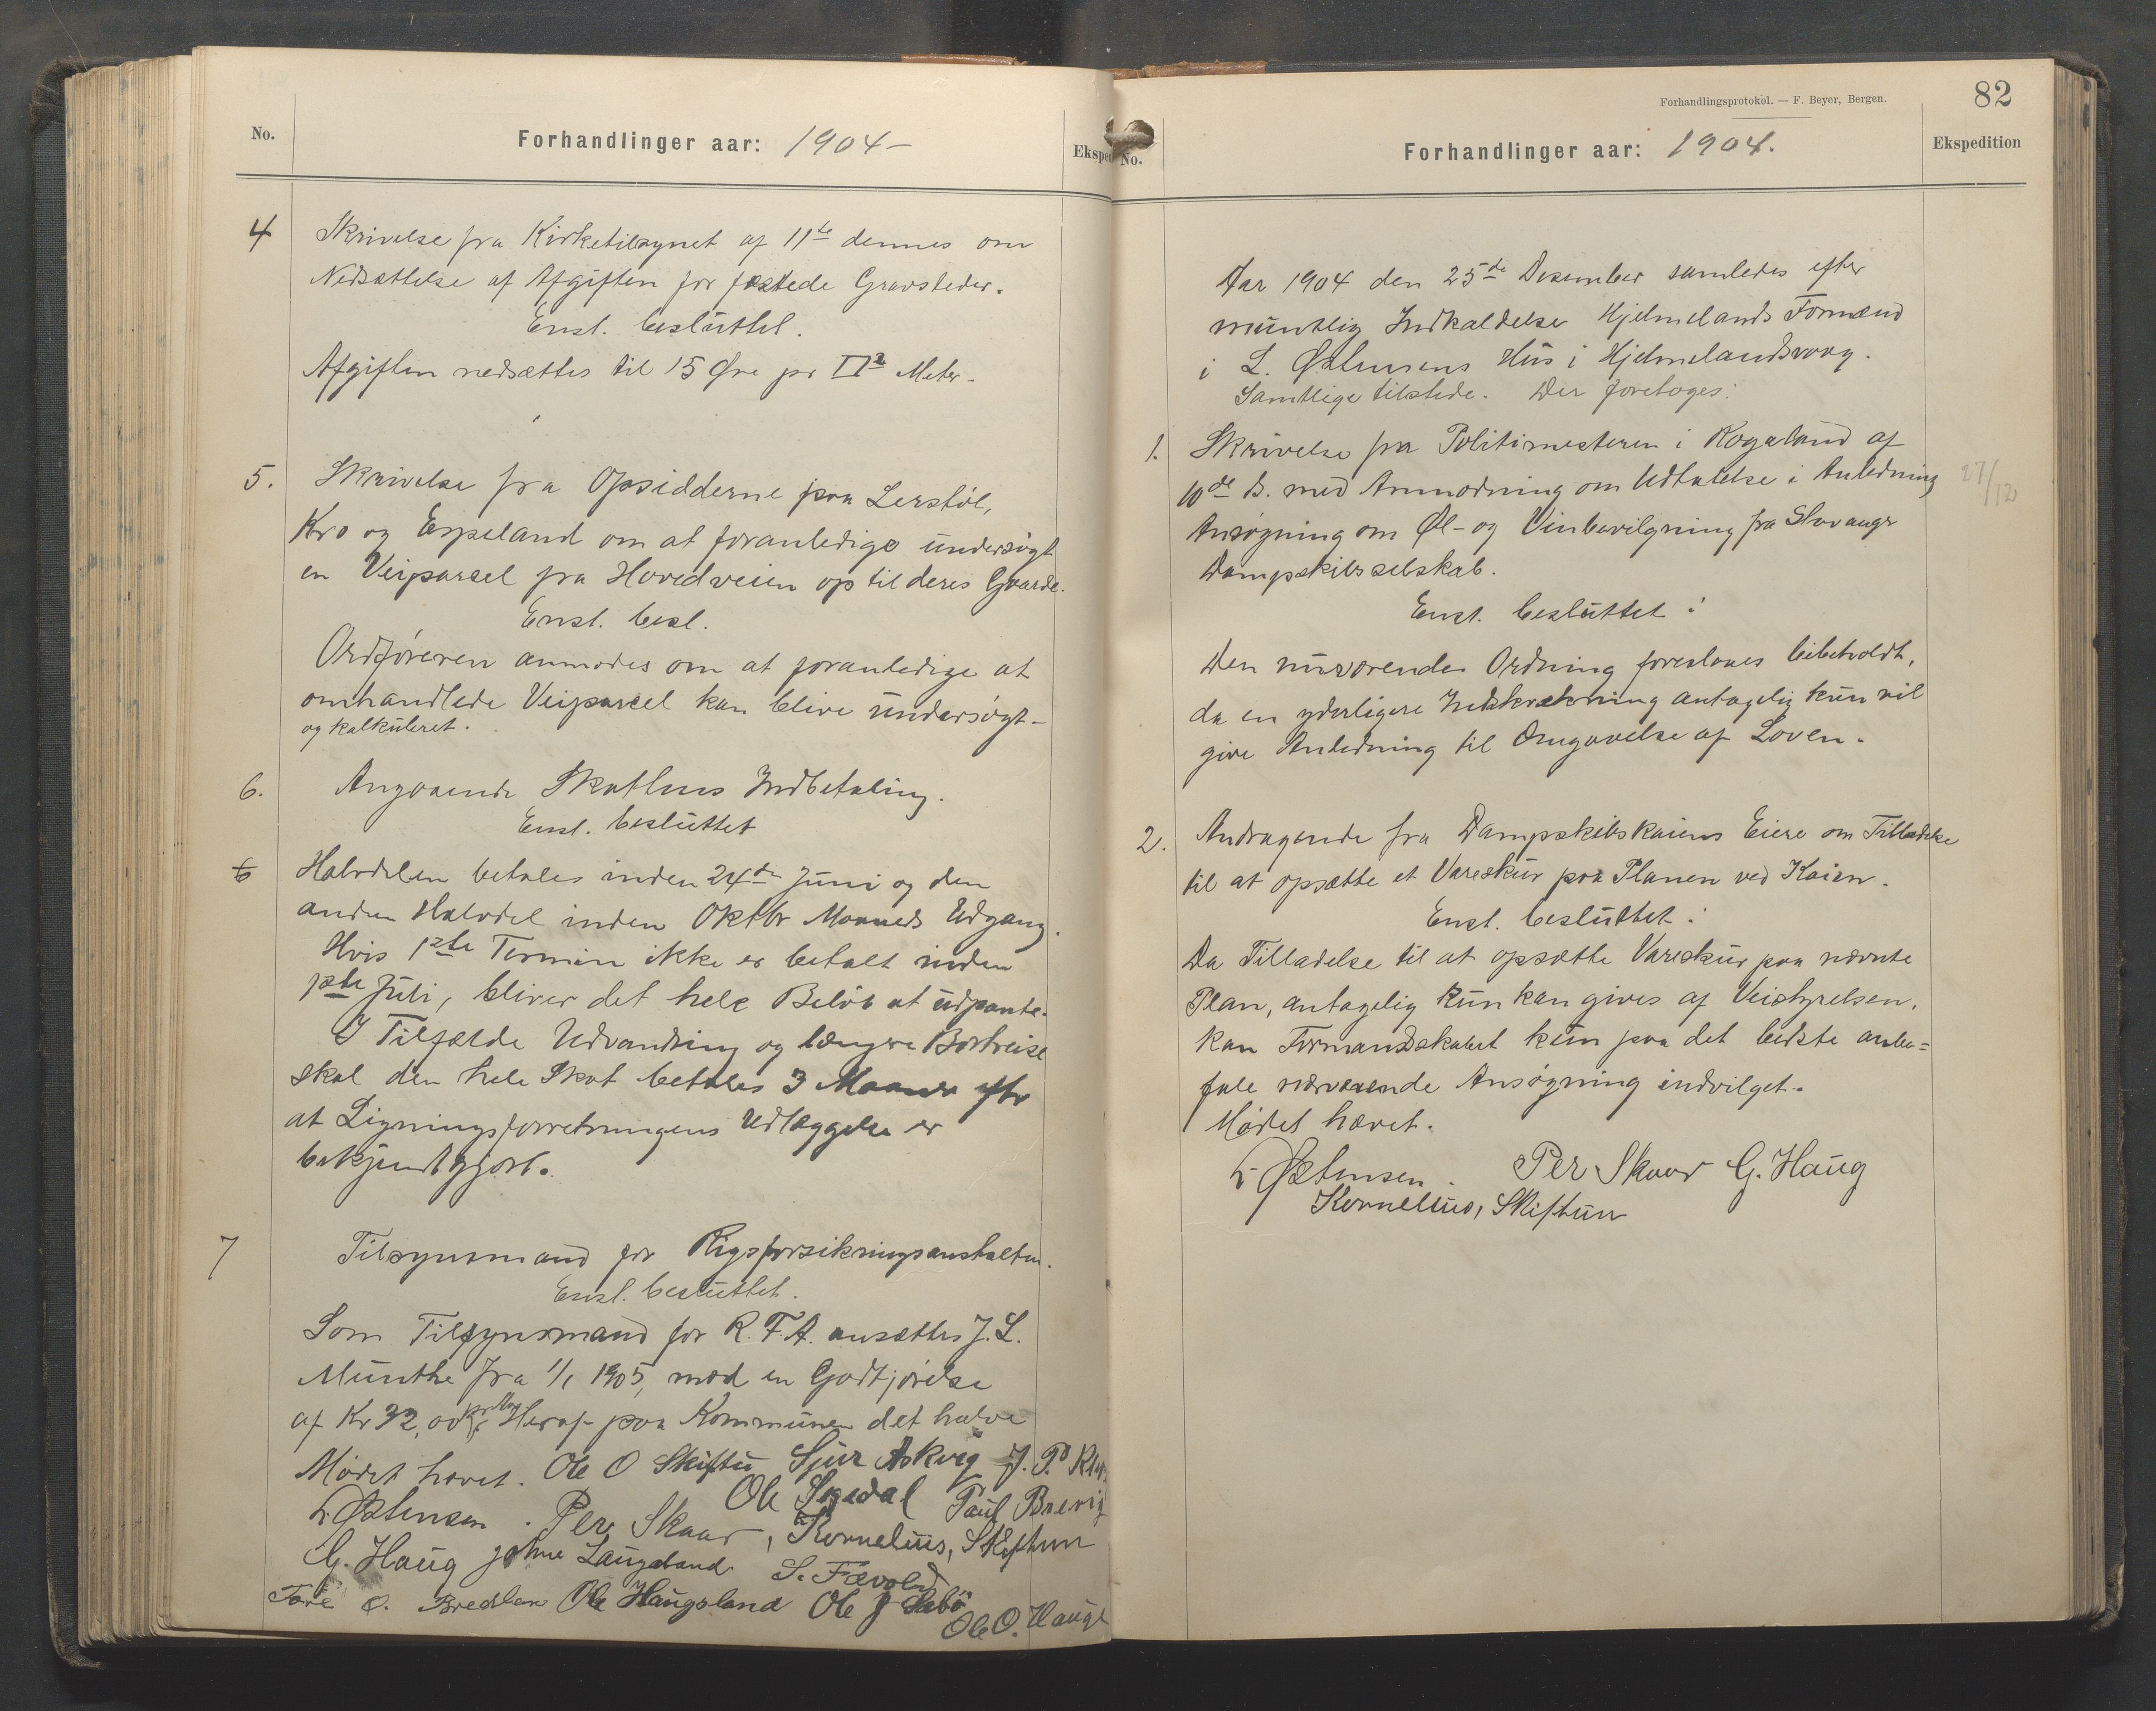 No.
Forhandlinger aar: 1904 —
Eksped
4 Skrivelse fra Kirketilsynet af 11te dennes om
Nedsættelse af Afgiften for fæstede Gravsteder.
Enst. besluttet.
Afgiften nedsættes til 15 Øre pr □2 Meter.
5. Skrivelse fra Opsidderne paa Lerstøl,
Kro og Espeland om at foranledige undersøgt
en Veiparsel fra Hovedveien op til deres Gaarde.
Enst. besl.
Ordføreren anmodes om at foranledige at
omhandlede Veiparsel kan blive undersøgt
og kalkuleret.
6. Angaaende Skattens Indbetaling.
Enst. besluttet
6 Halvdelen betales inden 24de Juni og den
anden Halvdel inden Oktbr Maaneds Udgang.
Hvis 1ste Termin ikke er betalt inden
1ste Juli, bliver det hele Beløb at udpante.
I Tilfælde Udvandring og længere Bortreise
skal den hele Skat betales 3 Maaneder efter
at Ligningsforretningens Udlæggelse er
bekjendtgjort.
7 Tilsynsmand for Rigsforsikringsanstalten.
Enst. besluttet.
Som Tilsynsmand for R.F.A. ansættes J. L.
Munthe fra 1/1 1905, mod en Godtjørelse
af Kr 32,00 pr Aar Heraf paa Kommunen det halve
Mødet hævet. Ole O Skiftu Sjur Askvig J. P.
Ole Segedal Paul Brevig
L Østensen. Per Skaar, Kornelius, Skiftun
G. Haug Johne Laugaland S. Fævold
Tore O. Bredlan Ole Haugaland Ole J Sæbø
Ole O. Hauge
Forhandlingsprotokol. — F. Beyer, Bergen.
82
No.
Forhandlinger aar: 1904.
Ekspedition
Aar 1904 den 25de Desember samledes efter
muntlig Indkaldelse Hjelmelands Formænd
i L. Østensens Hus i Hjelmelandsvaag.
Samtlige tilstede. Der foretoges:
1. Skrivelse fra Politimesteren i Rogaland af
10de ds. med Anmodning om Udtalelse i Anledning
Ansøgning om Øl- og Vinbevilgning fra Stavanger
Dampskibsselskab.
27/12
Enst. besluttet:
Den nuværende Ordning foreslaaes bibeholdt,
da en yderligere Indskrækning antagelig kun vil
give Anledning til Omgaaelse af Loven.
2. Andragende fra Dampskibskaiens Eiere om Tilladelse
til at opsætte et Vareskur paa Planen ved Kaien.
Enst. besluttet:
Da Tilladelse til at opsætte Vareskur paa nævnte
Plan, antagelig kun kan gives af Veistyrelsen,
kan Formandskabet kun paa det bedste anbe=
fale nærværende Ansøgning indvilget.
Mødet hævet.
L Østensen. Per Skaar G. Haug
Kornelius, Skiftun